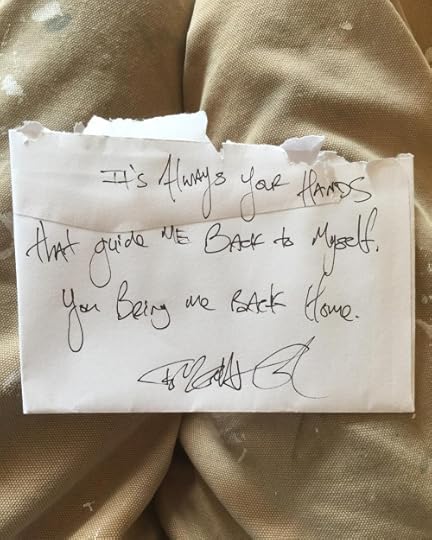 It's Always your HANDS
that guide ME BACk to Myself.
You Being me BACk Home.